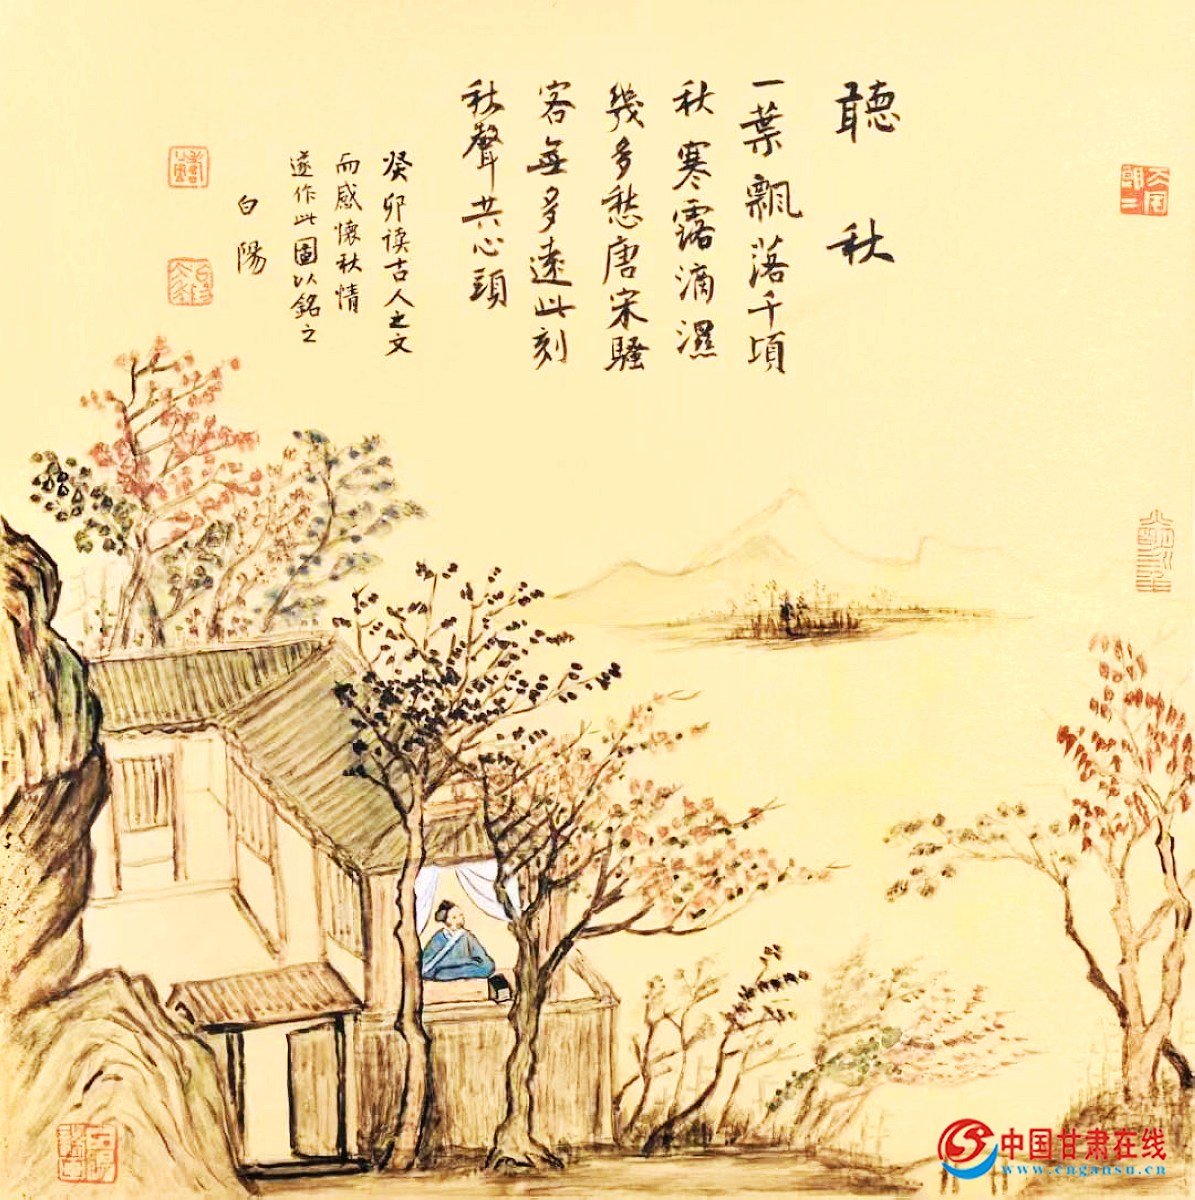 聽秋
一葉飄落千頃
秋寒露滴濕
幾多愁唐宋騷
客無多遠此刻
秋聲共心頭
癸卯读古人之文
而感懷秋情
遂作此圖以銘之
白陽
中国甘肃在线
www.cngansu.cn